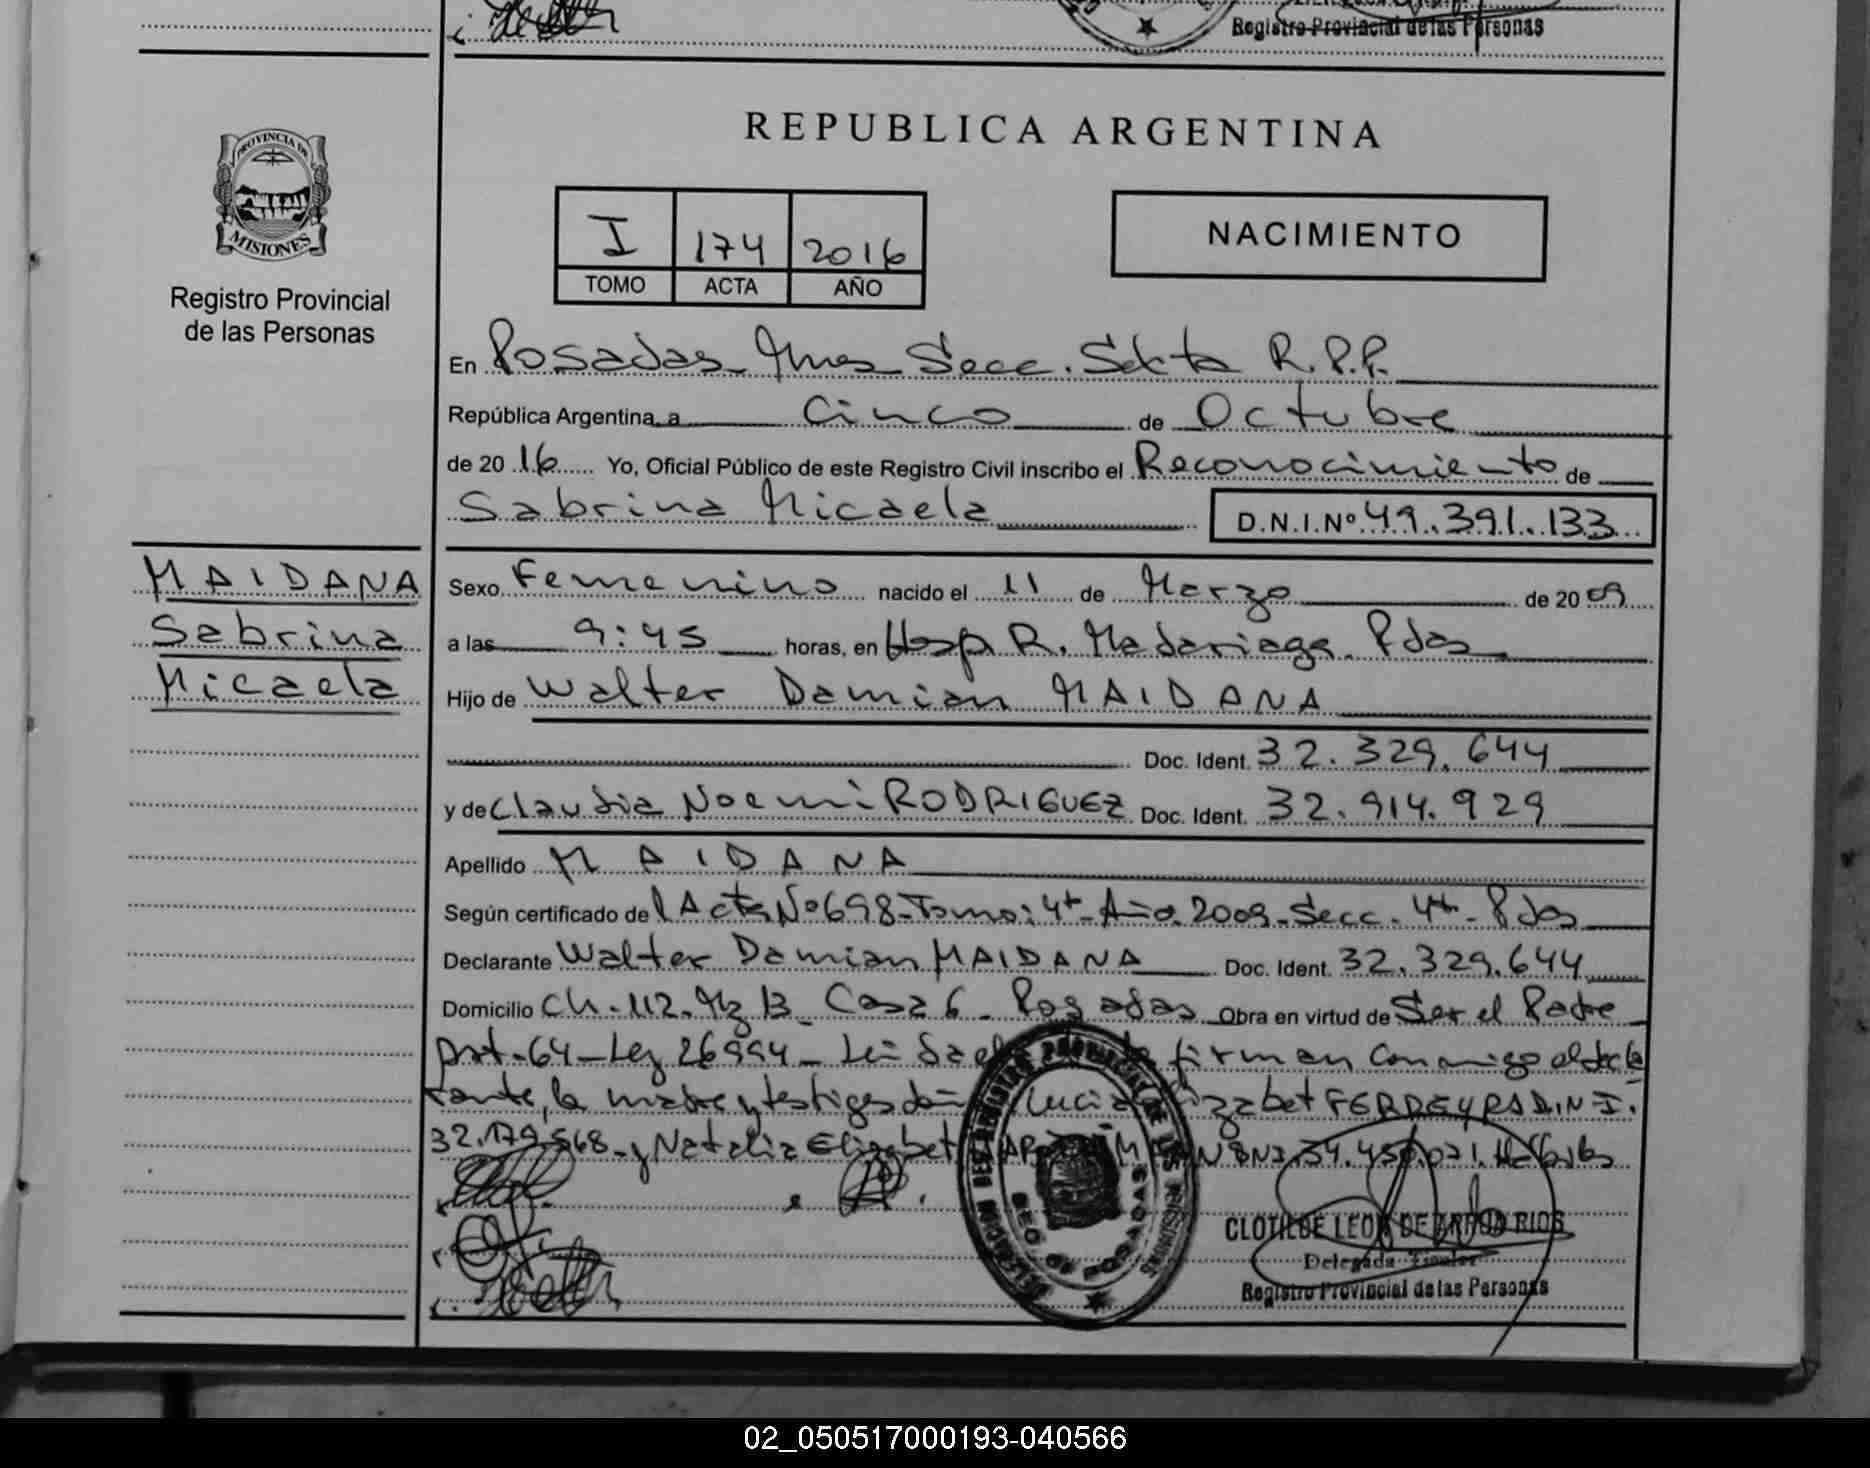 Registro Provincial de las Personas
REPUBLICA ARGENTINA
PROVINCIA DE
MISIONES
Registro Provincial
de las Personas
I 174 2016
TOMO ACTA AÑO
NACIMIENTO
En Posadas Mnes Secc. Sexta R.P.P.
República Argentina, a Cinco de Octubre
de 2016 Yo, Oficial Público de este Registro Civil inscribo el Reconocimiento de
Sabrina Micaela D.N.I.Nº 49.391.133
MAIDANA
Sabrina
Micaela
Sexo Femenino nacido el 11 de Marzo de 2009
a las 9:45 horas, en Hosp R. Madariaga. Pdas
Hijo de Walter Damian MAIDANA
Doc. Ident. 32.329.644
y de Claudia Noemi RODRIGUEZ Doc. Ident. 32.914.929
Apellido MAIDANA
Según certificado del Acta Nº 698-Tomo: 4to-Año 2009-Secc. 4ta-Pdas
Declarante Walter Damian MAIDANA Doc. Ident. 32.329.644
Domicilio Ch. 112. Mz 13 Casa 6 - Posadas Obra en virtud de Ser el Padre
Art-64-Ley 26994- firman conmigo el decla
rante, la madre y testigos Lucia FERREYRA D.N.I.
32.179.568- y Natalia Elizabet
REG. DE POSADAS
CLOTILDE LEON DE
Delegada Titular
Registro Provincial de las Personas
02_050517000193-040566